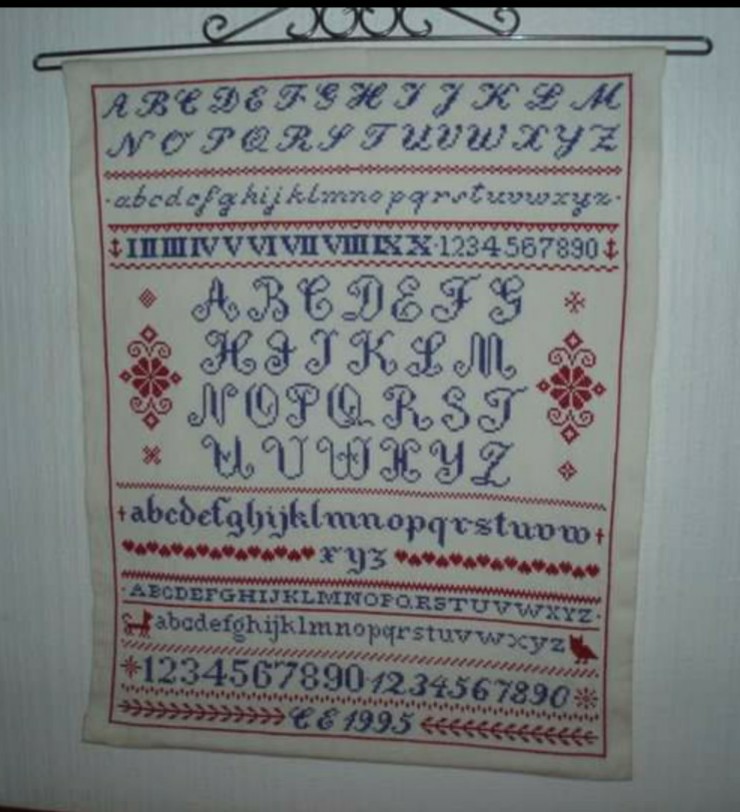 A B C D E F G H I J K L M
N O P Q R S T U V W X Y Z
·abcdefghijklmnopqrstuvwxyz·
I II III IV V VI VII VIII IX X·1234567890
A B C D E F G
H I J K L M
N O P Q R S T
U V W X Y Z
abcdefghijklmnopqrstuvw
xyz
·ABCDEFGHIJKLMNOPQRSTUVWXYZ·
abcdefghijklmnopqrstuvwxyz
1234567890 1234567890
CE 1995